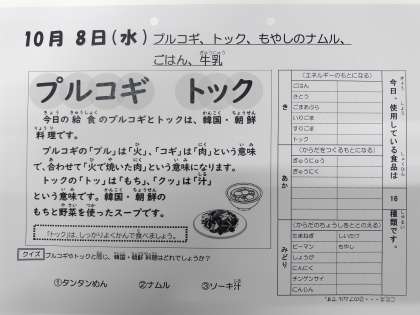 10月 8日(水) プルコギ、トック、もやしのナムル、
ごはん、牛乳
プルコギ トック
今日の給食のプルコギとトックは、韓国・朝鮮
料理です。
プルコギの「プル」は「火」、「コギ」は「肉」という意味
で、合わせて「火で焼いた肉」という意味になります。
トックの「トッ」は「もち」、「クッ」は「汁」
という意味です。韓国・朝鮮の
もちと野菜を使ったスープです。
「トック」は、しっかりよくかんで食べましょう。
クイズ プルコギやトックと同じ、韓国・朝鮮料理はどれでしょうか?
①タンタンめん ②ナムル ③ソーキ汁
今日、使用している食品は
16
種類です。
き
(エネルギーのもとになる)
ごはん
さとう
ごまあぶら
いりごま
すりごま
トック
あか
(からだをつくるもとになる)
ぎゅうにゅう
ぎゅうにく
みどり
(からだのちょうしをととのえる)
たまねぎ しいたけ
ピーマン もやし
しょうが
にんにく
チンゲンサイ
にんじん